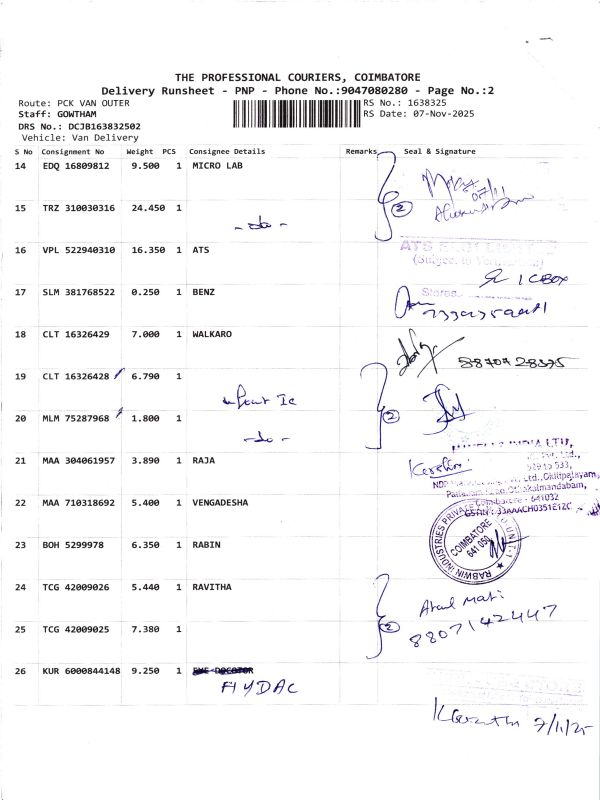 THE PROFESSIONAL COURIERS, COIMBATORE
Delivery Runsheet - PNP - Phone No.:9047080280 - Page No.:2
Route: PCK VAN OUTER
RS No.: 1638325
Staff: GOWTHAM
RS Date: 07-Nov-2025
DRS No.: DCJB163832502
Vehicle: Van Delivery
S No Consignment No Weight PCS Consignee Details Remarks Seal & Signature
14 EDQ 16809812 9.500 1 MICRO LAB
07/11
2
15 TRZ 310030316 24.450 1
- do -
16 VPL 522940310 16.350 1 ATS
ATS
1 CBOX
17 SLM 381768522 0.250 1 BENZ
Stores
18 CLT 16326429 7.000 1 WALKARO
19 CLT 16326428 6.790 1
2
20 MLM 75287968 1.800 1
- do -
INDIA LTD,
21 MAA 304061957 3.890 1 RAJA
Ltd.,
529 to 533,
Ltd., Othakalmandabam,
22 MAA 710318692 5.400 1 VENGADESHA
Coimbatore - 641032
GSTIN : 33AAACH0351E1ZC
23 BOH 5299978 6.350 1 RABIN
RABWIN INDUSTRIES PRIVATE UNIT-1
COIMBATORE
641 050
24 TCG 42009026 5.440 1 RAVITHA
2
88071 42447
25 TCG 42009025 7.380 1
26 KUR 6000844148 9.250 1
HYDAC
7/11/25